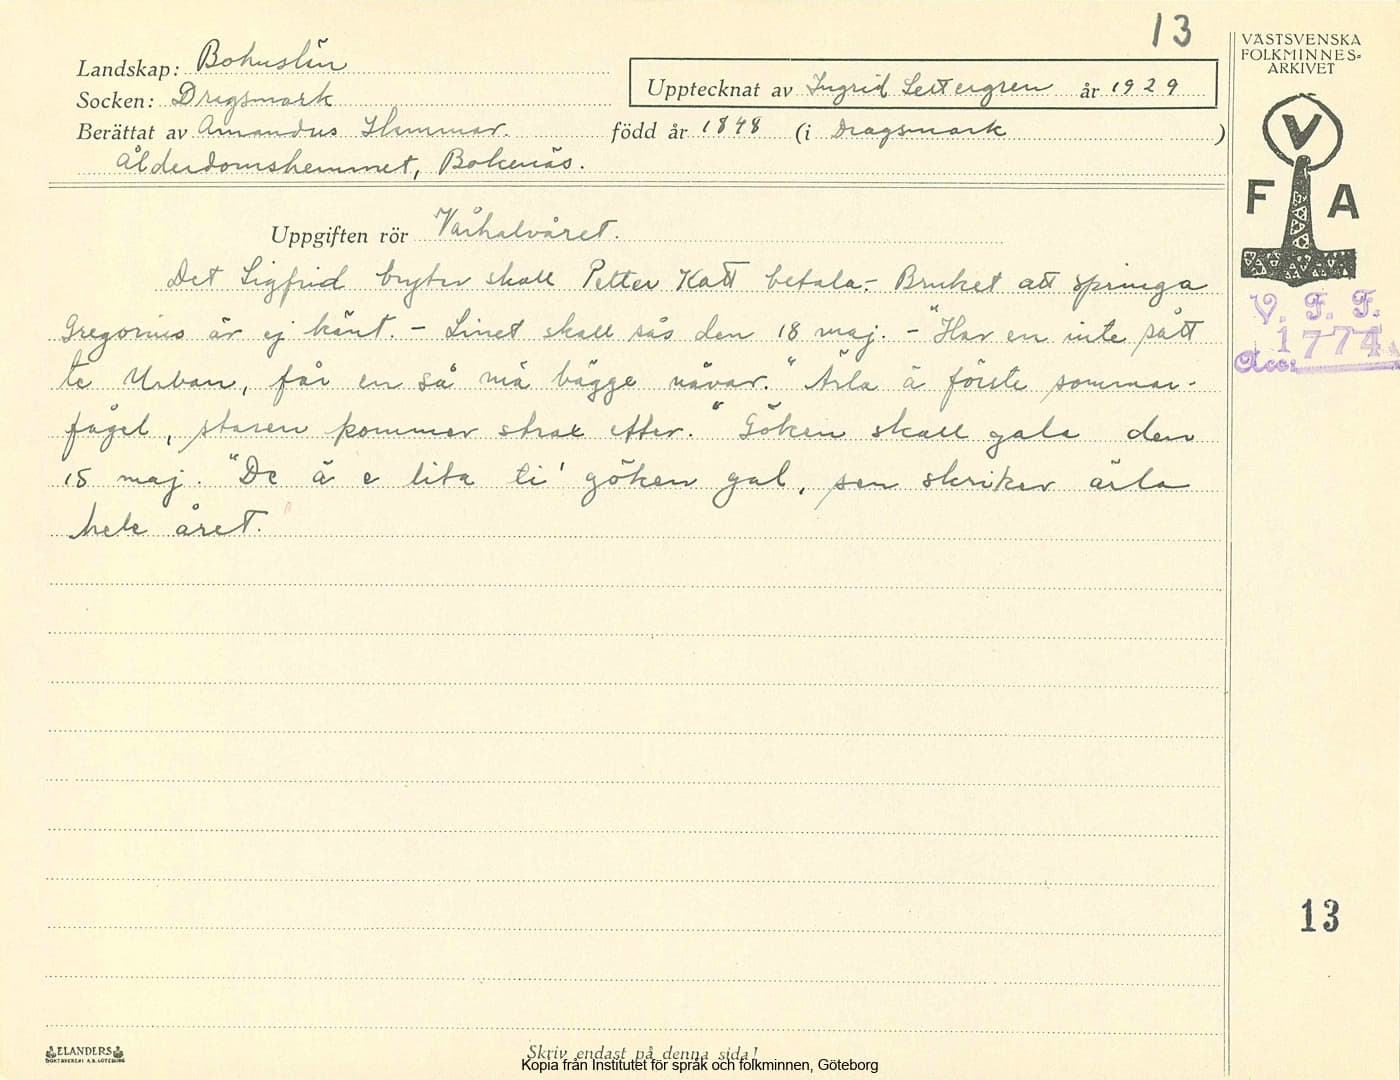 13
Landskap: Bohuslän
Socken: Dragsmark
Upptecknat av Ingrid Settergren år 1929
Berättat av Amandus Hammar. född år 1848 (i Dragsmark )
Ålderdomshemmet, Bokenäs.
Uppgiften rör Vårhalvåret.
Det Sigfrid bryter skall Petter Katt betala. - Bruket att springa
Gregorius är ej känt. - Linet skall sås den 18 maj. - "Har en inte sått
te Urban, får en så mä bägge nävar." "Ärla ä förste sommar-
fågel, staren kommer strax efter." Göken skall gala den
15 maj. "De ä e lita ti' göken gal, sen skriker ärla
hele året.
VÄSTSVENSKA
FOLKMINNES=
ARKIVET
V
F A
V. F. F.
Acc: 1774
13
ELANDERS
BOKTRYCKERI A.B. GÖTEBORG
Skriv endast på denna sida!
Kopia från Institutet för språk och folkminnen, Göteborg